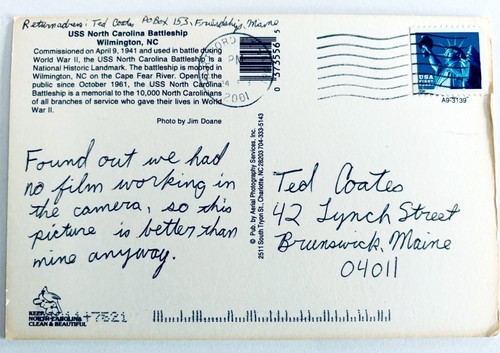 Return address: Ted Coates PO Box 153, Friendship, Maine
USS North Carolina Battleship
Wilmington, NC
Commissioned on April 9, 1941 and used in battle during
World War II, the USS North Carolina Battleship is a
National Historic Landmark. The battleship is moored in
Wilmington, NC on the Cape Fear River. Open to the
public since October 1961, the USS North Carolina
Battleship is a memorial to the 10,000 North Carolinians
of all branches of service who gave their lives in World
War II.
Photo by Jim Doane
PM
2001
USA
A9-3139
© Pub. by Aerial Photography Services, Inc.
2511 South Tryon St., Charlotte, NC 28203 704-333-5143
Found out we had
no film working in
the camera, so this
picture is better than
mine anyway.
Ted Coates
42 Lynch Street
Brunswick, Maine
04011
KEEP
NORTH CAROLINA
CLEAN & BEAUTIFUL